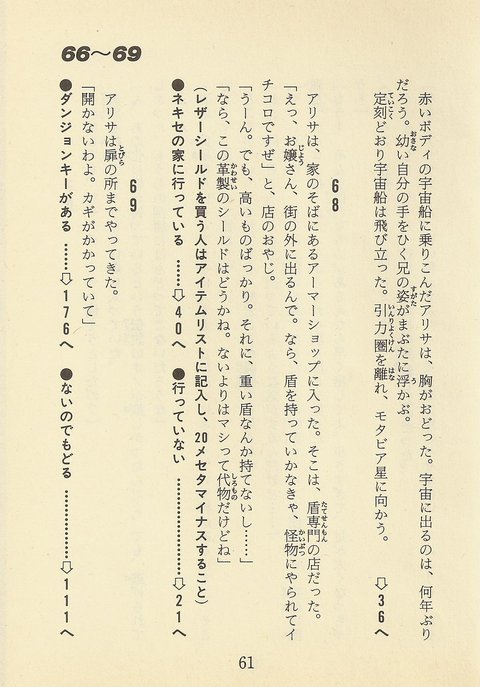 66～69
赤いボディの宇宙船に乗りこんだアリサは、胸がおどった。宇宙に出るのは、何年ぶり
だろう。幼い自分の手をひく兄の姿がまぶたに浮かぶ。
定刻どおり宇宙船は飛び立った。引力圏を離れ、モタビア星に向かう。
⇩36へ
68
アリサは、家のそばにあるアーマーショップに入った。そこは、盾専門の店だった。
「えっ、お嬢さん、街の外に出るんで。なら、盾を持っていかなきゃ、怪物にやられてイ
チコロですぜ」と、店のおやじ。
「うーん。でも、高いものばっかり。それに、重い盾なんか持てないし……」
「なら、この革製のシールドはどうかね。ないよりはマシって代物だけどね」
(レザーシールドを買う人はアイテムリストに記入し、20メセタマイナスすること)
●ネキセの家に行っている ……⇩40へ
●行っていない ……………⇩21へ
69
アリサは扉の所までやってきた。
「開かないわよ。カギがかかっていて」
●ダンジョンキーがある ……⇩176へ
●ないのでもどる …………⇩111へ
61